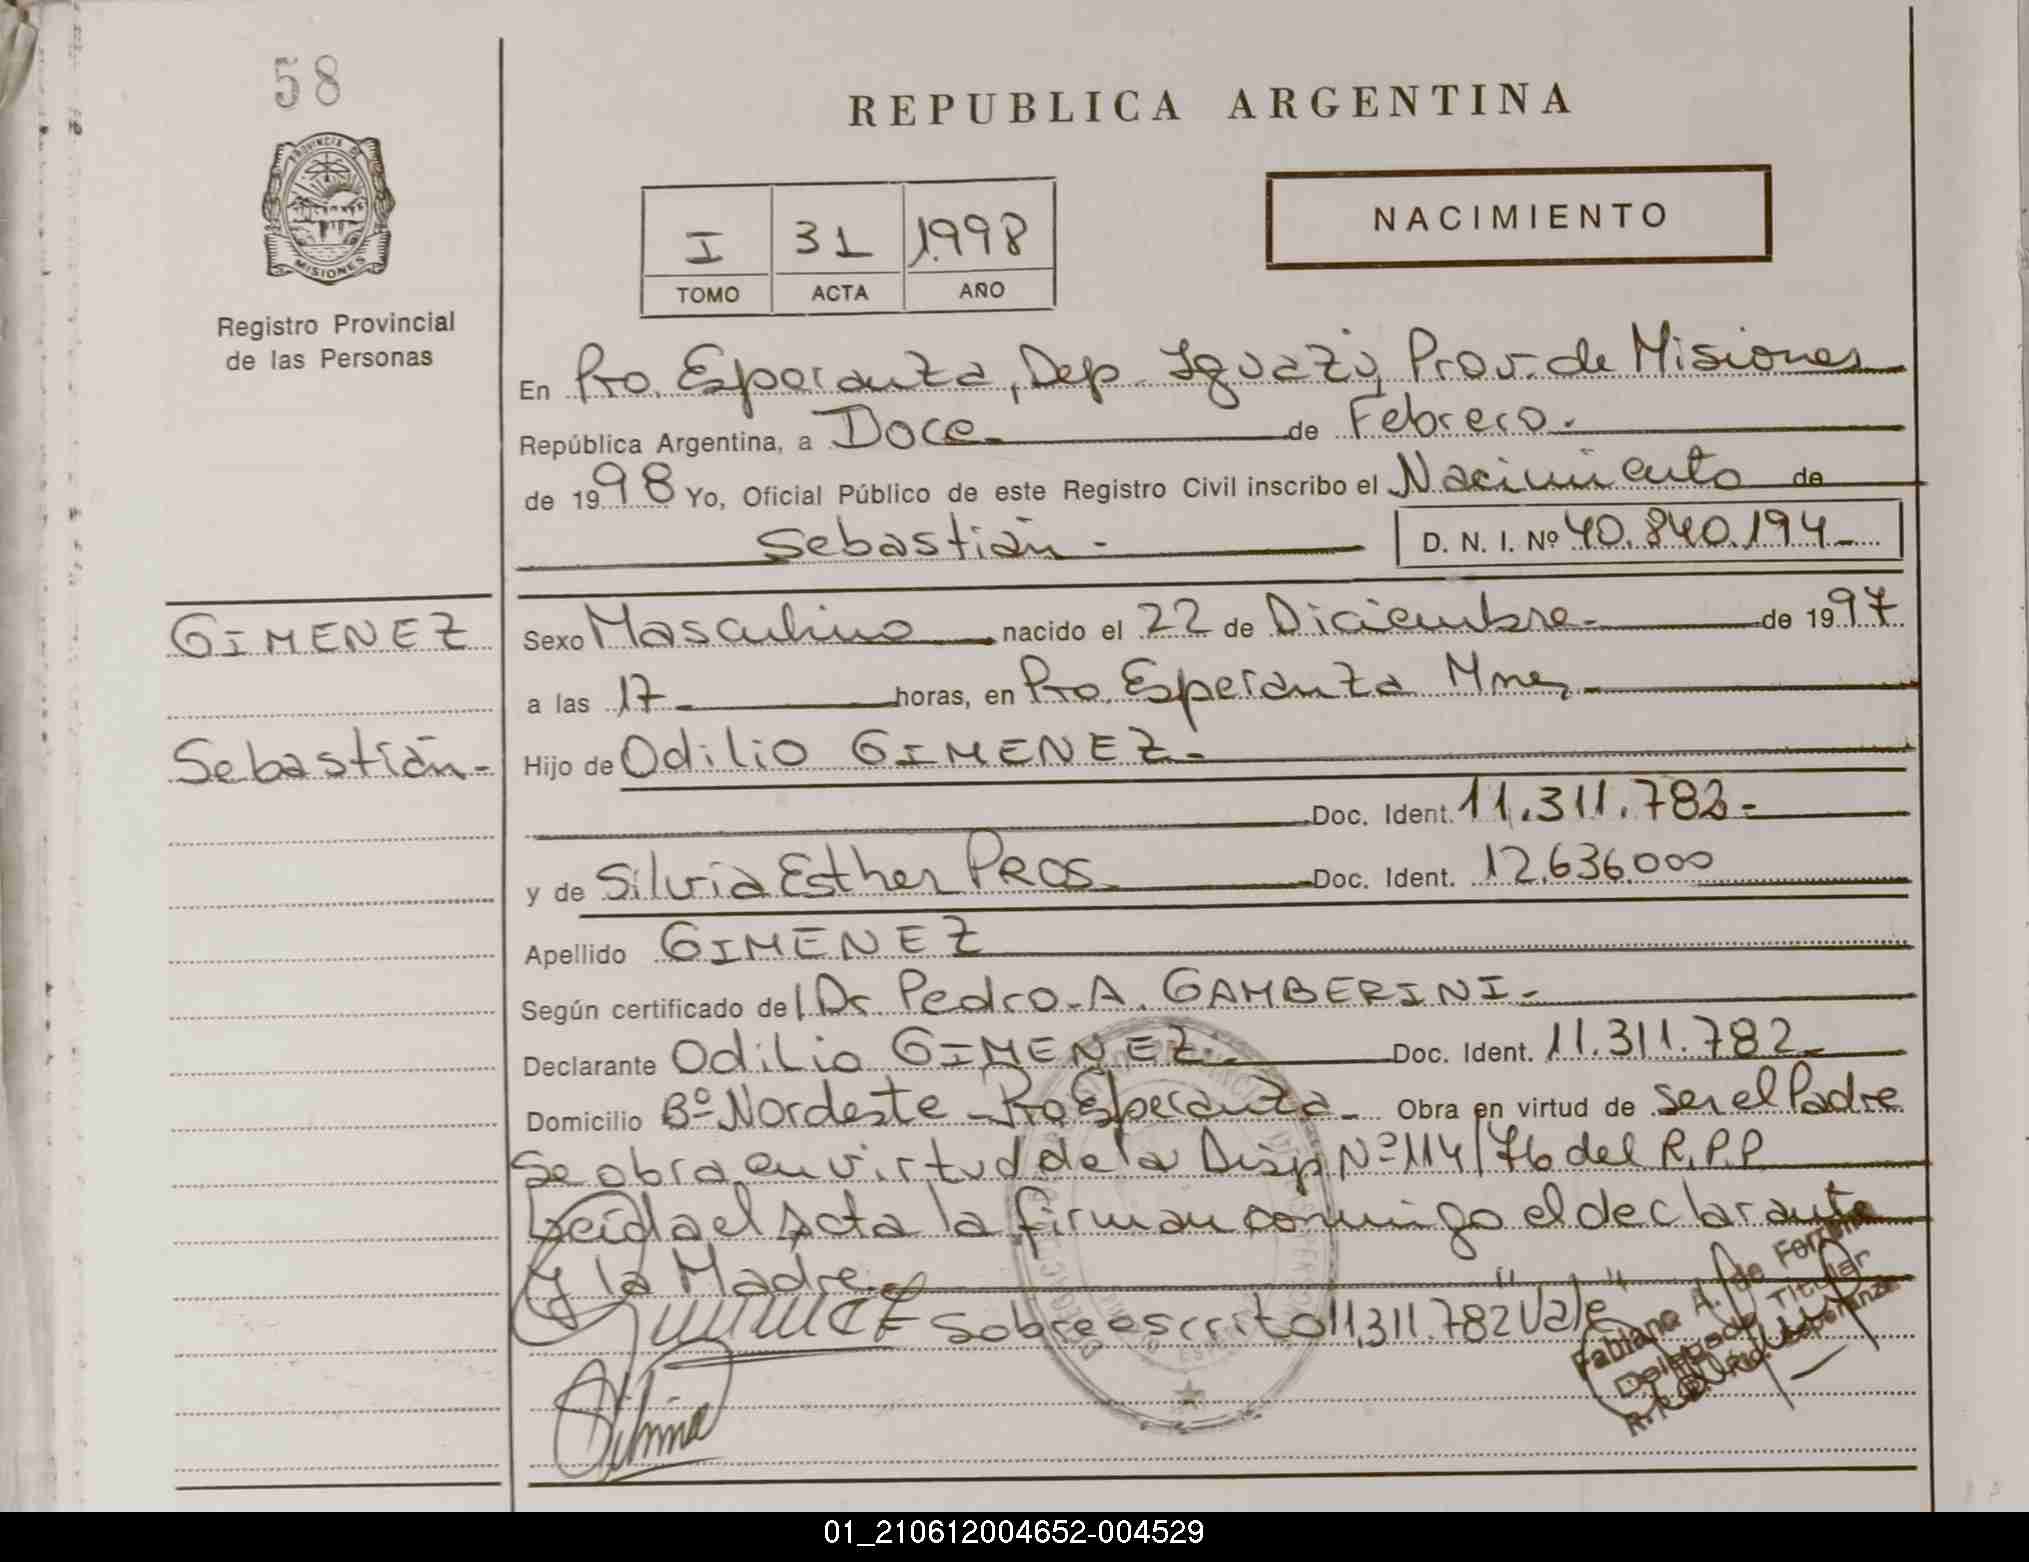 58
REPUBLICA ARGENTINA
PROVINCIA DE
MISIONES
Registro Provincial
de las Personas
I 31 1998
TOMO ACTA AÑO
NACIMIENTO
En Pto. Esperanza, Dep. Iguazú, Prov. de Misiones
República Argentina, a Doce de Febrero.
de 1998 Yo, Oficial Público de este Registro Civil inscribo el Nacimiento de
Sebastián - D. N. I. Nº 40.840.194
GIMENEZ
Sebastián -
Sexo Masculino nacido el 22 de Diciembre de 1997
a las 17 horas, en Pto. Esperanza Mnes
Hijo de Odilio GIMENEZ -
Doc. Ident. 11.311.782 -
y de Silvia Esther PROS Doc. Ident. 12.636.000
Apellido GIMENEZ
Según certificado del Dr. Pedro A. GAMBERINI -
Declarante Odilio GIMENEZ - Doc. Ident. 11.311.782 -
Domicilio Bº Nordeste - Pto Esperanza - Obra en virtud de ser el Padre
Se obra en virtud de la Disp Nº 114/76 del R.P.P
Leída el Acta la firman conmigo el declarante
y la Madre
Sobreescrito 11.311.782 "Vale"
Delegada Titular
01_210612004652-004529